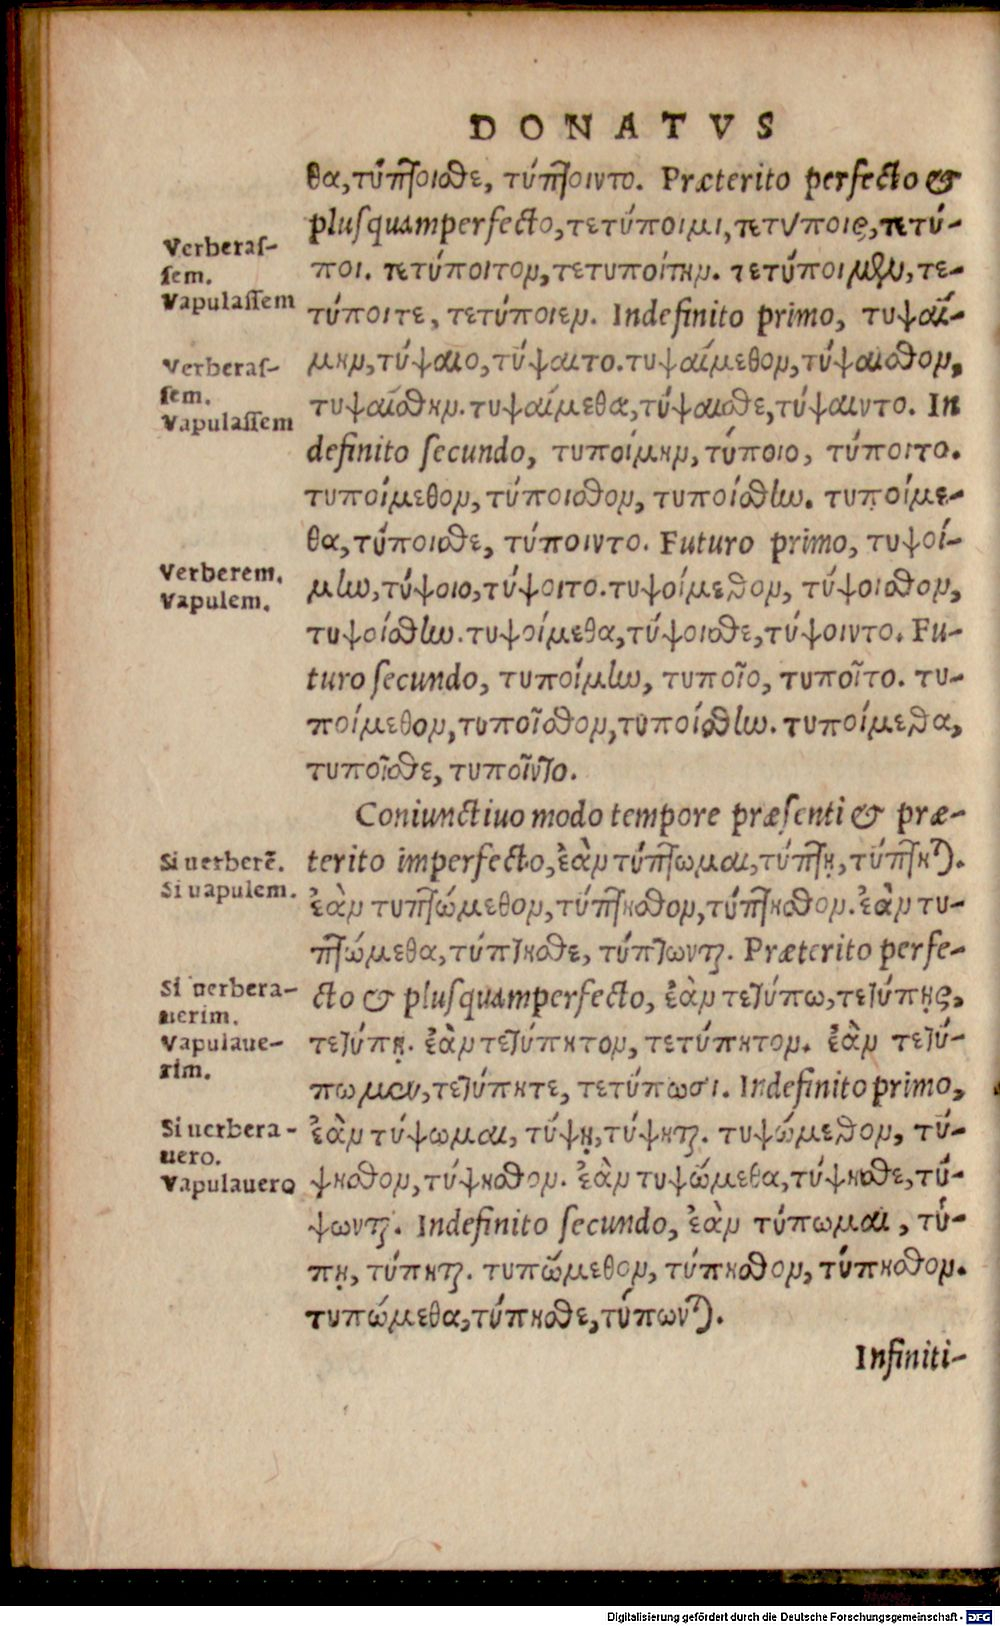 DONATVS
θα, τύπτοισθε, τύπτοιντο. Præterito perfecto &
plusquamperfecto, τετύποιμι, τετύποις, τετύ-
ποι. τετύποιτον, τετυποίτην. τετύποιμεν, τε-
τύποιτε, τετύποιεν. Indefinito primo, τυψαί-
μην, τύψαιο, τύψαιτο. τυψαίμεθον, τύψαισθον,
τυψαίσθην. τυψαίμεθα, τύψαισθε, τύψαιντο. In
definito secundo, τυποίμην, τύποιο, τύποιτο.
τυποίμεθον, τύποισθον, τυποίσθην. τυποίμε-
θα, τύποισθε, τύποιντο. Futuro primo, τυψοί-
μην, τύψοιο, τύψοιτο. τυψοίμεθον, τύψοισθον,
τυψοίσθην. τυψοίμεθα, τύψοισθε, τύψοιντο. Fu-
turo secundo, τυποίμην, τυποῖο, τυποῖτο. τυ-
ποίμεθον, τυποῖσθον, τυποίσθην. τυποίμεθα,
τυποῖσθε, τυποῖντο.
Coniunctiuo modo tempore præsenti & præ-
terito imperfecto, ἐὰν τύπτωμαι, τύπτῃ, τύπτηται.
ἐὰν τυπτώμεθον, τύπτησθον, τύπτησθον. ἐὰν τυ-
πτώμεθα, τύπτησθε, τύπτωνται. Præterito perfe-
cto & plusquamperfecto, ἐὰν τετύπω, τετύπῃς,
τετύπῃ. ἐὰν τετύπητον, τετύπητον. ἐὰν τετύ-
πωμεν, τετύπητε, τετύπωσι. Indefinito primo,
ἐὰν τύψωμαι, τύψῃ, τύψηται. τυψώμεθον, τύ-
ψησθον, τύψησθον. ἐὰν τυψώμεθα, τύψησθε, τύ-
ψωνται. Indefinito secundo, ἐὰν τύπωμαι, τύ-
πῃ, τύπηται. τυπώμεθον, τύπησθον, τύπησθον.
τυπώμεθα, τύπησθε, τύπωνται.
Infiniti-
Verberas-
sem.
Vapulassem
Verberas-
sem.
Vapulassem
Verberem.
Vapulem.
Si uerberē.
Si uapulem.
Si uerbera-
uerim.
Vapulaue-
rim.
Si uerbera-
uero.
Vapulauero
Digitalisierung gefördert durch die Deutsche Forschungsgemeinschaft - DFG